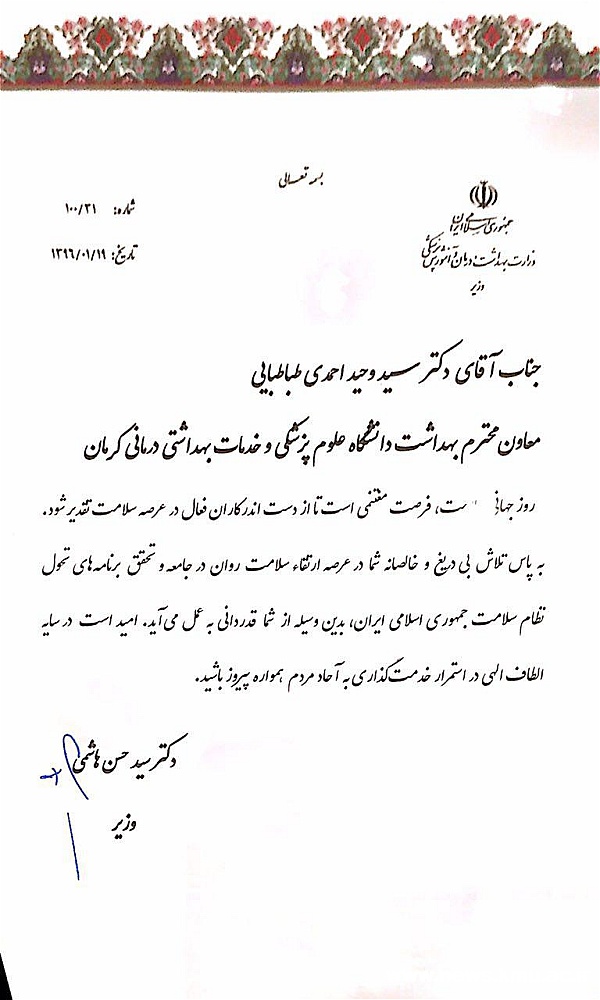 بسمه تعالی
جمهوری اسلامی ایران
وزارت بهداشت، درمان و آموزش پزشکی
وزیر
شماره: ۱۰۰/۳۱
تاریخ: ۱۳۹۶/۰۱/۱۹
جناب آقای دکتر سید وحید احمدی طباطبایی
معاون محترم بهداشت دانشگاه علوم پزشکی و خدمات بهداشتی درمانی کرمان
روز جهانی ست، فرصت مغتنمی است تا از دست اندرکاران فعال در عرصه سلامت تقدیر شود.
به پاس تلاش بی دریغ و خالصانه شما در عرصه ارتقاء سلامت روان در جامعه و تحقق برنامه‌های تحول
نظام سلامت جمهوری اسلامی ایران، بدین وسیله از شما قدردانی به عمل می‌آید. امید است در سایه
الطاف الهی در استمرار خدمت‌گذاری به آحاد مردم همواره پیروز باشید.
دکتر سید حسن هاشمی
وزیر